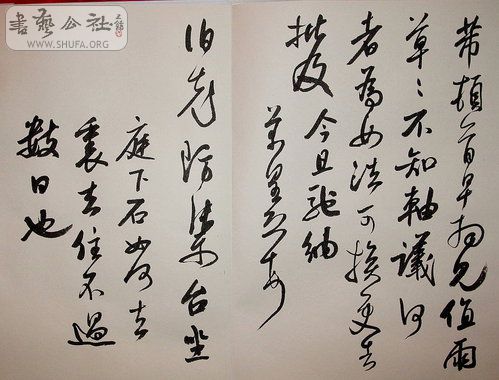 書藝公社
WWW.SHUFA.ORG
芾頓首早拜見值雨
草々不知軸議何
者為如法可換更告
批及今且馳納
芾皇恐
伯充防禦台坐
庭下石如何去
裏去住不過
數日也